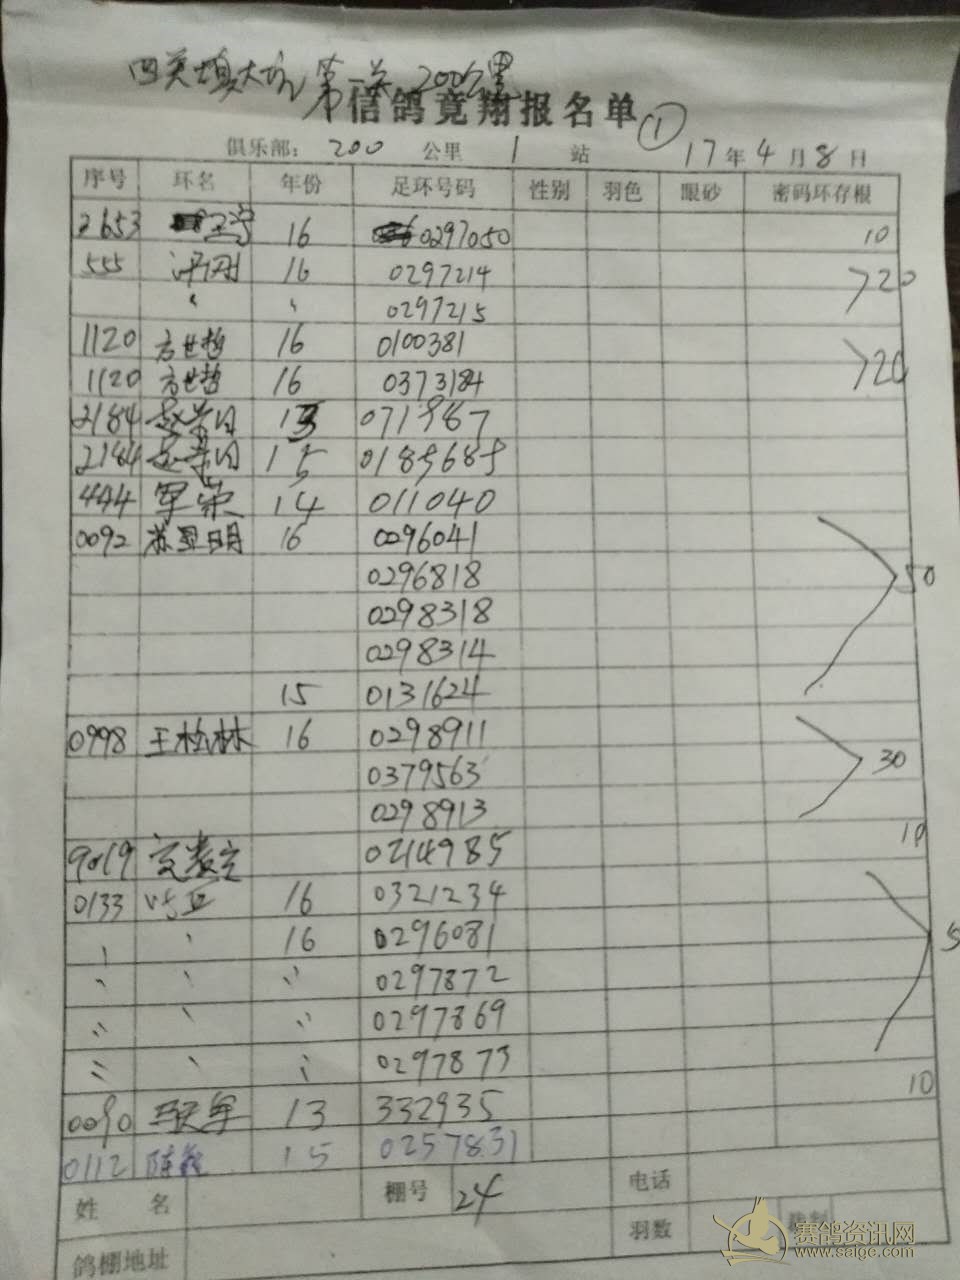 四关填大坑 第一关 200公里
信鸽竞翔报名单 ①
俱乐部: 200 公里 1 站 17年4月8日
序号 环名 年份 足环号码 性别 羽色 眼砂 密码环存根
2653 16 0297050 10
555 16 0297214 20
0297215
1120 方世哲 16 0100381 20
1120 方世哲 16 0373184
2184 0719887
2184 15 0189689
444 军荣 14 011040
0092 苏显明 16 0296041
0296818 50
0298318
0298314
15 0131624
0998 王松林 16 0298911
0379563 30
0298913
9019 0214985 10
0133 16 0321234
16 0296081 5
〃 0297872
〃 〃 0297869
〃 0297873
0090 13 332935 10
0112 陈 15 0257831
姓名 棚号 24 电话
鸽棚地址 羽数 裁判
赛鸽资讯网
www.saigc.com